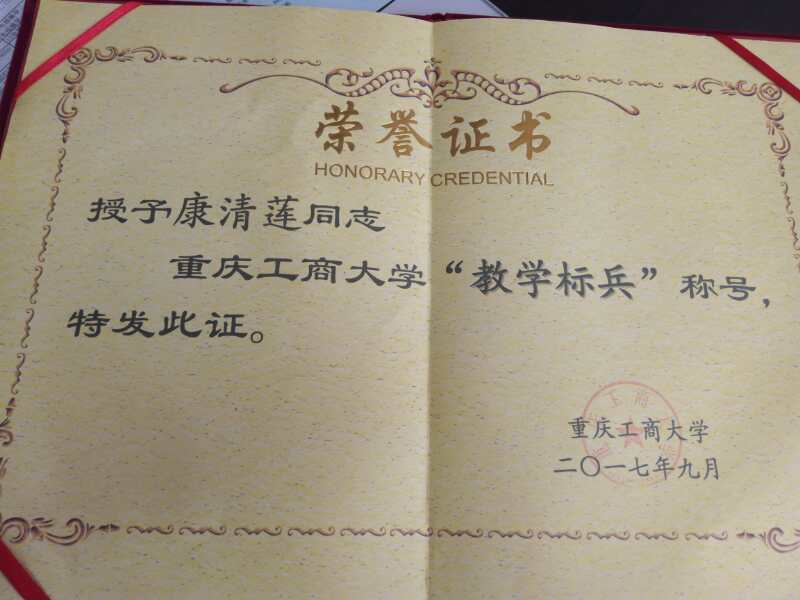 荣誉证书
HONORARY CREDENTIAL
授予康清莲同志
重庆工商大学“教学标兵”称号，
特发此证。
重庆工商大学
二〇一七年九月